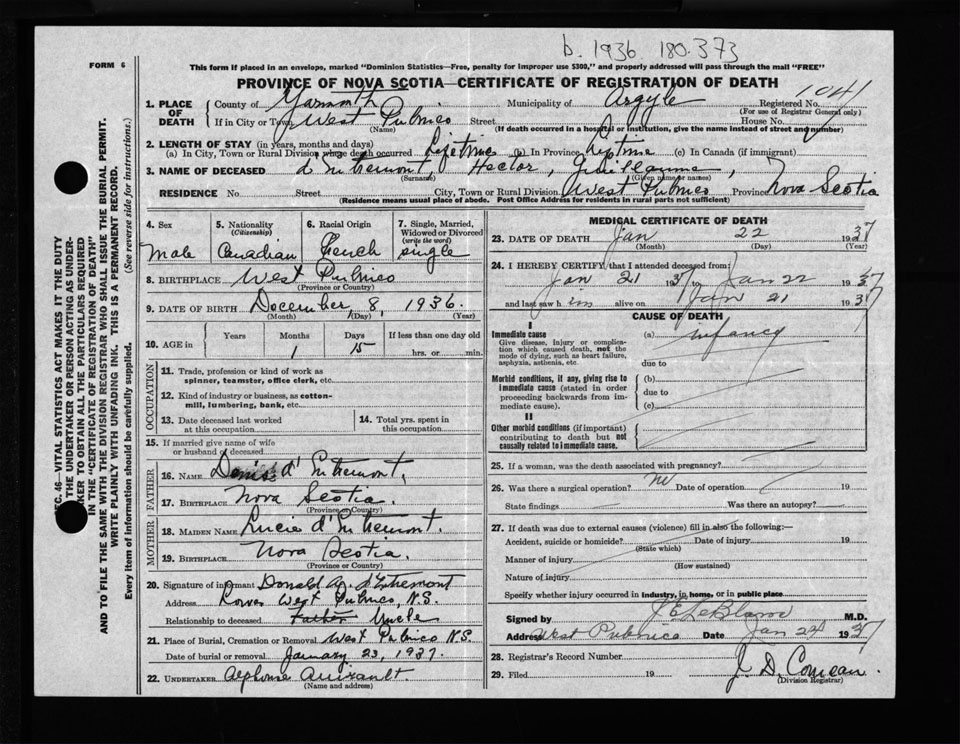 b. 1936 180.373
FORM 6
This form if placed in an envelope, marked "Dominion Statistics—Free, penalty for improper use $300," and properly addressed will pass through the mail "FREE"
PROVINCE OF NOVA SCOTIA—CERTIFICATE OF REGISTRATION OF DEATH
1. PLACE OF DEATH
County of Yarmouth Municipality of Argyle Registered No. 1041
(For use of Registrar General only)
If in City or Town West Pubnico Street House No.
(Name) (If death occurred in a hospital or institution, give the name instead of street and number)
2. LENGTH OF STAY (in years, months and days)
(a) In City, Town or Rural Division where death occurred Lifetime (b) In Province Liftime (c) In Canada (if immigrant)
3. NAME OF DECEASED d'Entremont, Hector, Guillaume,
(Surname) (Given name or names)
RESIDENCE No Street City, Town or Rural Division West Pubnico Province Nova Scotia
(Residence means usual place of abode. Post Office Address for residents in rural parts not sufficient)
4. Sex
Male
5. Nationality
(Citizenship)
Canadian
6. Racial Origin
French
7. Single, Married,
Widowed or Divorced
(write the word)
single
8. BIRTHPLACE West Pubnico
(Province or Country)
9. DATE OF BIRTH December, 8, 1936.
(Month) (Day) (Year)
10. AGE in
Years Months Days If less than one day old
1 15 hrs. or min.
OCCUPATION
11. Trade, profession or kind of work as
spinner, teamster, office clerk, etc.
12. Kind of industry or business, as cotton-
mill, lumbering, bank, etc.
13. Date deceased last worked
at this occupation
14. Total yrs. spent in
this occupation
15. If married give name of wife
or husband of deceased
FATHER
16. NAME Denis d'Entremont,
17. BIRTHPLACE Nova Scotia.
(Province or Country)
MOTHER
18. MAIDEN NAME Lucie d'Entremont.
19. BIRTHPLACE Nova Scotia.
(Province or Country)
20. Signature of informant Donald A. d'Entremont
Address Lower West Pubnico, N.S.
Relationship to deceased Father Uncle
21. Place of Burial, Cremation or Removal West Pubnico N.S.
Date of burial or removal January 23, 1937.
22. UNDERTAKER Alphonse
(Name and address)
MEDICAL CERTIFICATE OF DEATH
23. DATE OF DEATH Jan 22 1937
(Month) (Day) (Year)
24. I HEREBY CERTIFY that I attended deceased from
Jan 21 1937 Jan 22 1937
and last saw him alive on Jan 21 1937
CAUSE OF DEATH
I
Immediate cause
Give disease, injury or complica-
tion which caused death, not the
mode of dying, such as heart failure,
asphyxia, asthenia, etc.
(a) Infancy
due to
Morbid conditions, if any, giving rise to
immediate cause (stated in order
proceeding backwards from im-
mediate cause).
(b)
due to
(c)
II
Other morbid conditions (if important)
contributing to death but not
causally related to immediate cause.
25. If a woman, was the death associated with pregnancy?
26. Was there a surgical operation? no Date of operation 19
State findings Was there an autopsy?
27. If death was due to external causes (violence) fill in also the following:—
Accident, suicide or homicide? Date of injury 19
(State which)
Manner of injury
(How sustained)
Nature of injury
Specify whether injury occurred in industry, in home, or in public place
Signed by J E LeBlanc M.D.
Address West Pubnico Date Jan 24 1937
28. Registrar's Record Number
29. Filed 19 J. D. Comeau.
(Division Registrar)
SEC. 46—VITAL STATISTICS ACT MAKES IT THE DUTY
OF THE UNDERTAKER OR PERSON ACTING AS UNDER-
TAKER TO OBTAIN ALL THE PARTICULARS REQUIRED
IN THE "CERTIFICATE OF REGISTRATION OF DEATH"
AND TO FILE THE SAME WITH THE DIVISION REGISTRAR WHO SHALL ISSUE THE BURIAL PERMIT.
WRITE PLAINLY WITH UNFADING INK. THIS IS A PERMANENT RECORD.
Every item of information should be carefully supplied. (See reverse side for Instructions.)